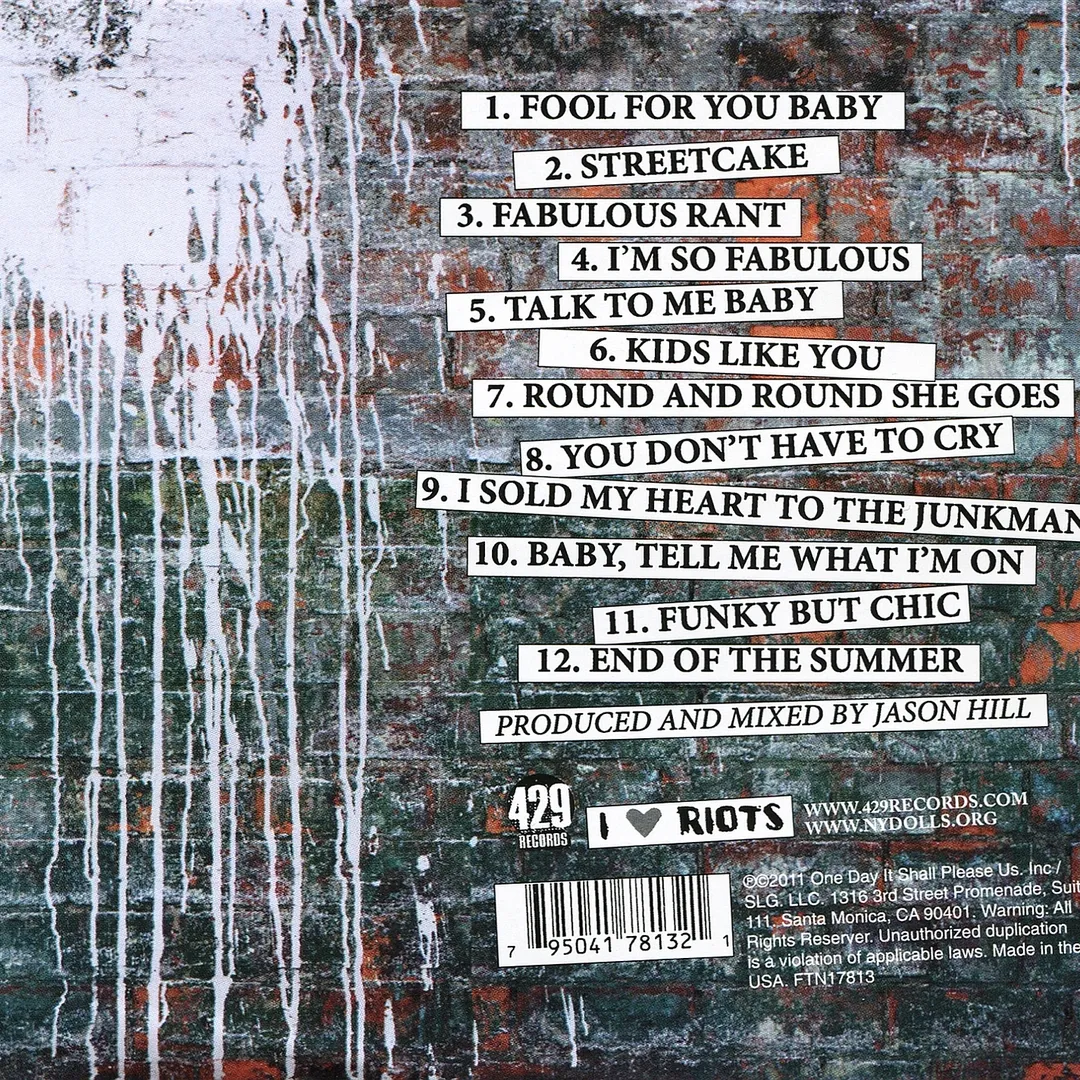 1. FOOL FOR YOU BABY
2. STREETCAKE
3. FABULOUS RANT
4. I'M SO FABULOUS
5. TALK TO ME BABY
6. KIDS LIKE YOU
7. ROUND AND ROUND SHE GOES
8. YOU DON'T HAVE TO CRY
9. I SOLD MY HEART TO THE JUNKMAN
10. BABY, TELL ME WHAT I'M ON
11. FUNKY BUT CHIC
12. END OF THE SUMMER
PRODUCED AND MIXED BY JASON HILL
429
RECORDS
I ♥ RIOTS
WWW.429RECORDS.COM
WWW.NYDOLLS.ORG
7 95041 78132 1
℗©2011 One Day It Shall Please Us. Inc /
SLG. LLC. 1316 3rd Street Promenade, Suit
111. Santa Monica, CA 90401. Warning: All
Rights Reserver. Unauthorized duplication
is a violation of applicable laws. Made in the
USA. FTN17813